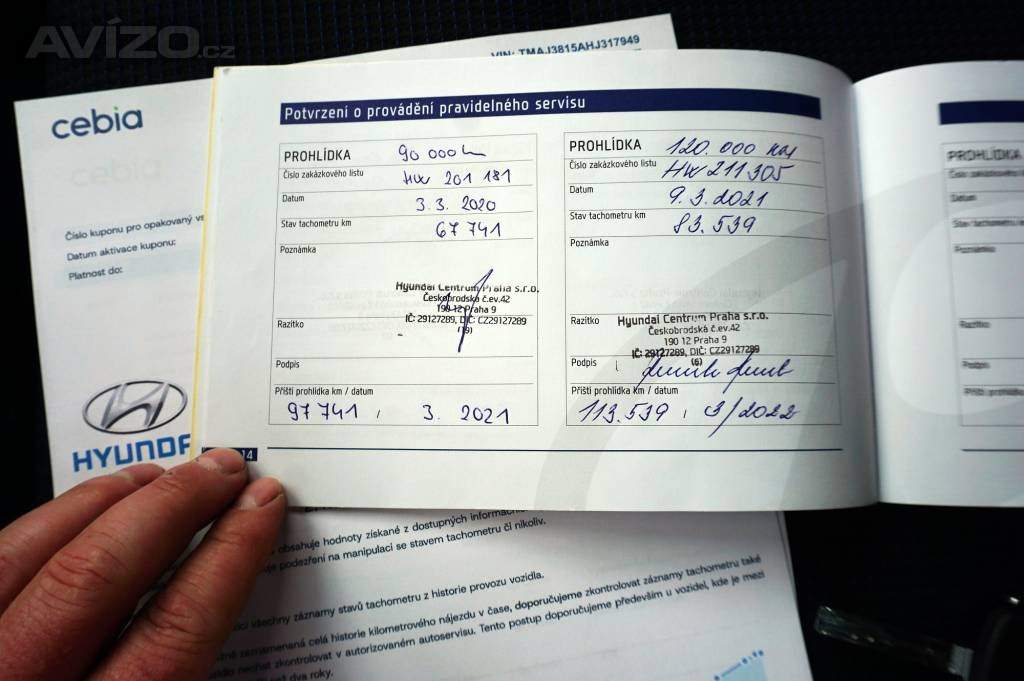 AVÍZO.cz
VIN: TMAJ3815AHJ317949
cebia
Číslo kuponu pro opakovaný
Datum aktivace kuponu:
Platnost do:
HYUNDAI
Potvrzení o provádění pravidelného servisu
PROHLÍDKA 90 000 km
Číslo zakázkového listu HW 201 181
Datum 3. 3. 2020
Stav tachometru km 67 741
Poznámka
Hyundai Centrum Praha s.r.o.
Českobrodská č.ev.42
190 12 Praha 9
IČ: 29127289, DIČ: CZ29127289
Razítko
Podpis
Příští prohlídka km / datum
97 741 / 3. 2021
14
PROHLÍDKA 120.000 km
Číslo zakázkového listu HW 211305
Datum 9.3.2021
Stav tachometru km 83.539
Poznámka
Razítko
Hyundai Centrum Praha s.r.o.
Českobrodská č.ev.42
190 12 Praha 9
IČ: 29127289, DIČ: CZ29127289
(6)
Podpis
Příští prohlídka km / datum
113.539 / 3/2022
PROHLÍDKA
Číslo zakázkového
Datum
Stav tachometru km
Poznámka
Razítko
Podpis
Příští prohlídka
obsahuje hodnoty získané z dostupných informač
podezření na manipulaci se stavem tachometru či nikoliv.
všechny záznamy stavů tachometru z historie provozu vozidla.
zaznamenaná celá historie kilometrového nájezdu v čase, doporučujeme zkontrolovat záznamy tachometru také
nechat zkontrolovat v autorizovaném autoservisu. Tento postup doporučujeme především u vozidel, kde je mezi
dva roky.